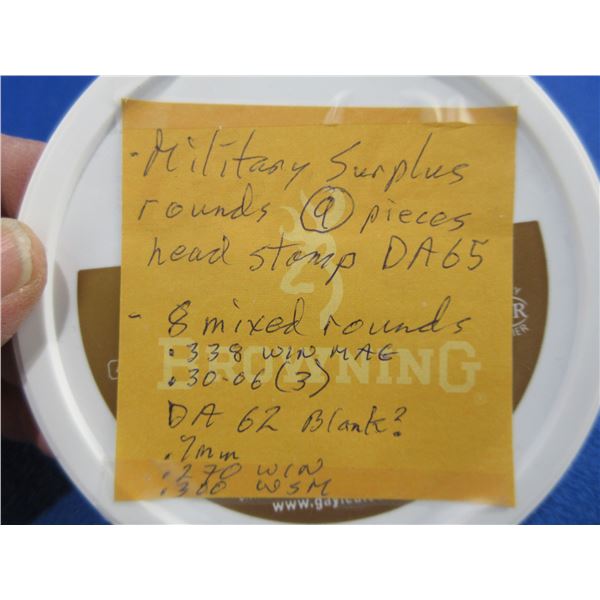 - Military Surplus
rounds (9) pieces
head stamp DA65
- 8 mixed rounds
.338 WIN MAG
BROWNING
.30-06 (3)
DA 62 Blank?
.7mm
.270 WIN
.300 WSM